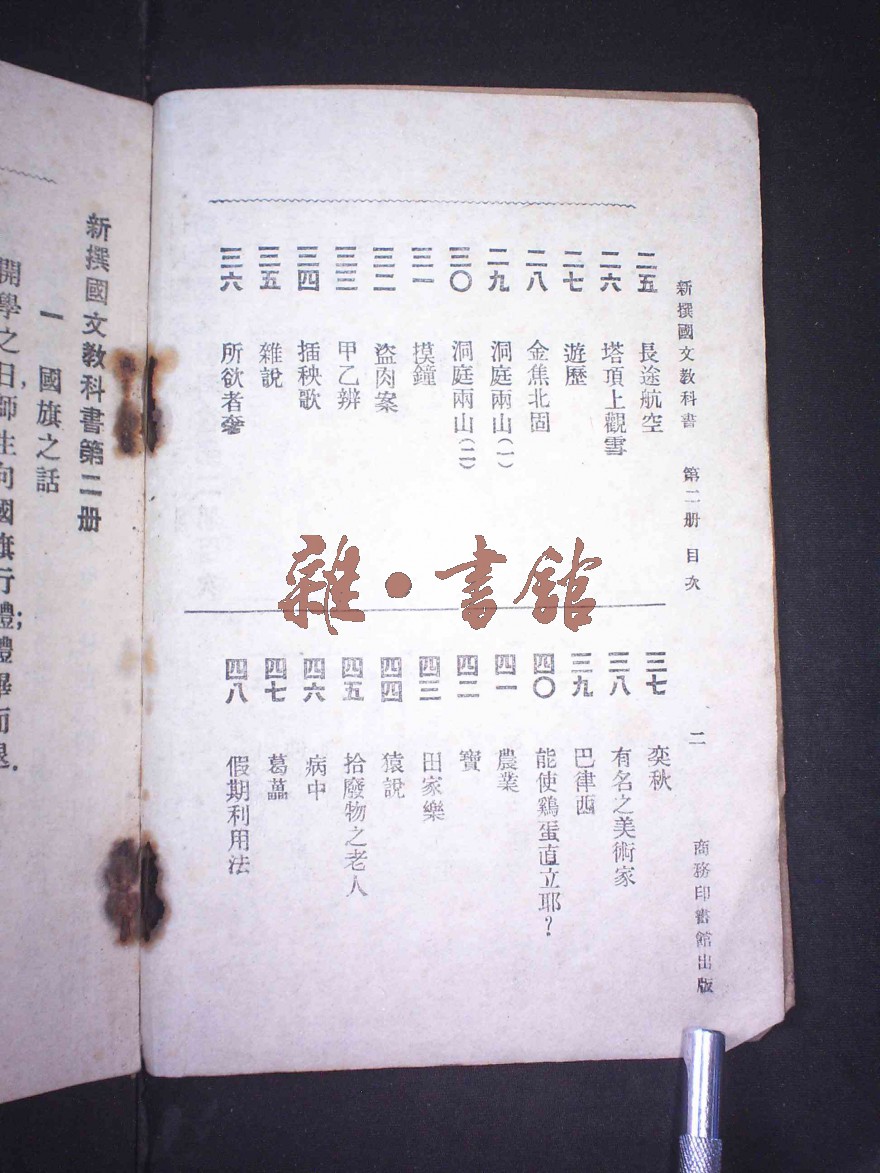 新撰國文教科書 第二册 目次
二
商務印書館出版
二五 長途航空
二六 塔頂上觀雪
二七 遊歷
二八 金焦北固
二九 洞庭兩山(一)
三〇 洞庭兩山(二)
三一 摸鐘
三二 盜肉案
三三 甲乙辨
三四 插秧歌
三五 雜說
三六 所欲者奢
三七 奕秋
三八 有名之美術家
三九 巴律西
四〇 能使鷄蛋直立耶?
四一 農業
四二 寶
四三 田家樂
四四 猿說
四五 拾廢物之老人
四六 病中
四七 葛藟
四八 假期利用法
雜·書館
新撰國文教科書第二册
一 國旗之話
開學之日,師生向國旗行禮;禮畢而退.